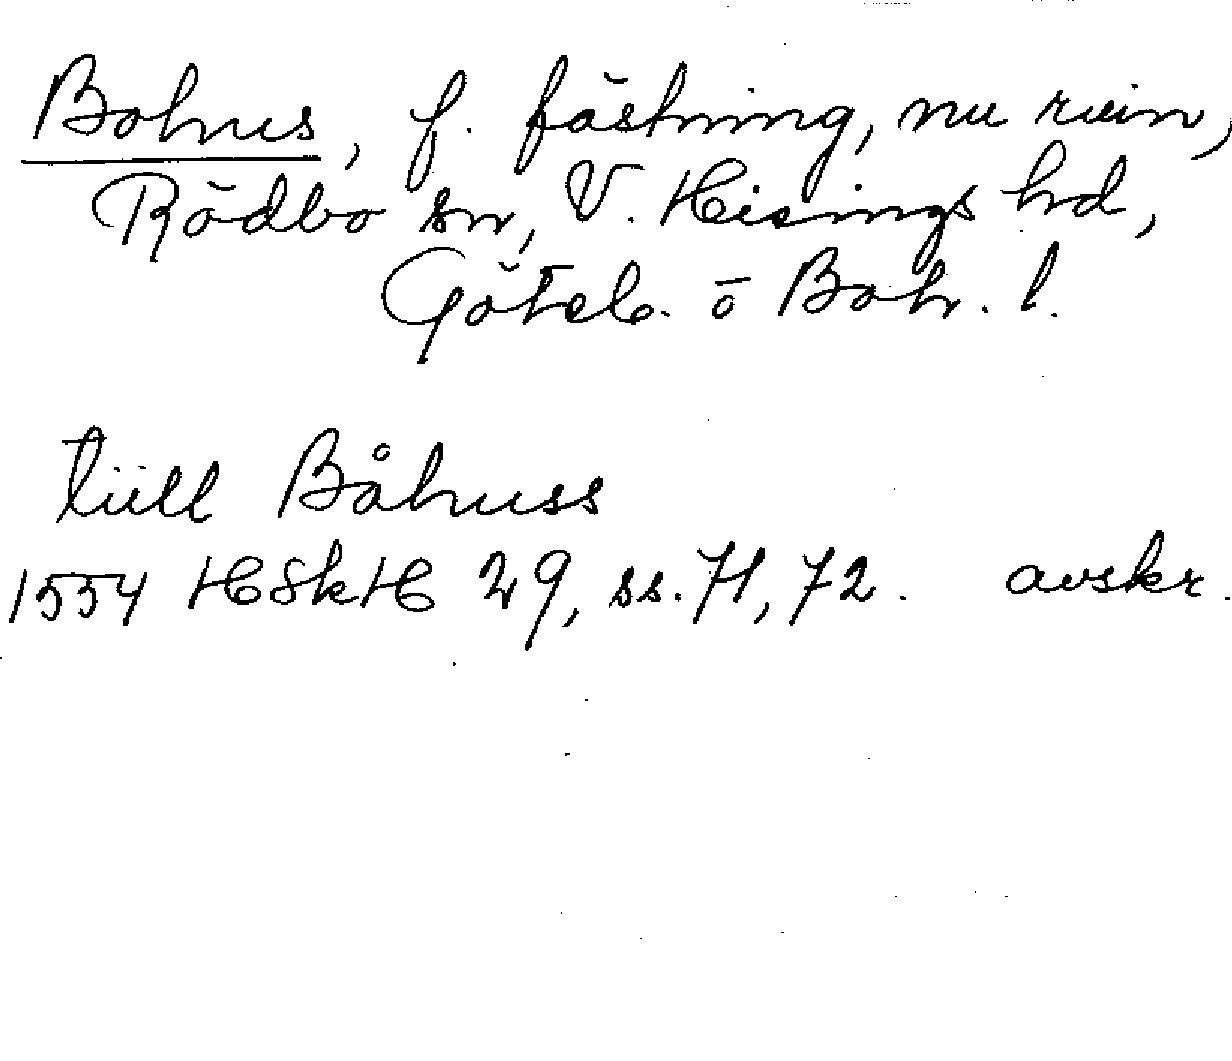 Bohus, f. fästning, nu ruin,
Rödbo sn, V. Hisings hd,
Göteb. o Boh. l.
tüll Båhuss
1554 HSkH 29, ss. 71, 72. avskr.